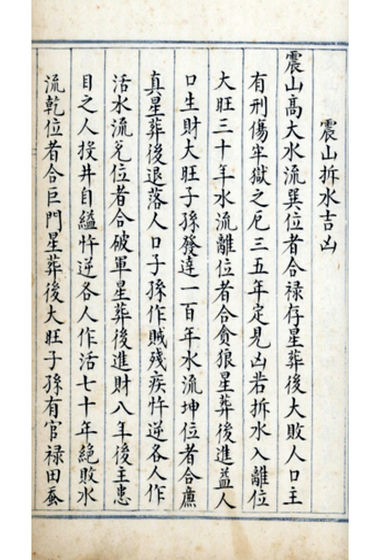 震山拆水吉凶
震山高大水流巽位者合禄存星葬後大敗人口主
有刑傷牢獄之厄三五年定見凶若拆水入離位
大旺三十年水流離位者合貪狼星葬後進益人
口生財大旺子孫發達一百年水流坤位者合廉
真星葬後退落人口子孫作賊殘疾忤逆各人作
活水流兌位者合破軍星葬後進財八年後主患
目之人投井自縊忤逆各人作活七十年絕敗水
流乾位者合巨門星葬後大旺子孫有官禄田蚕